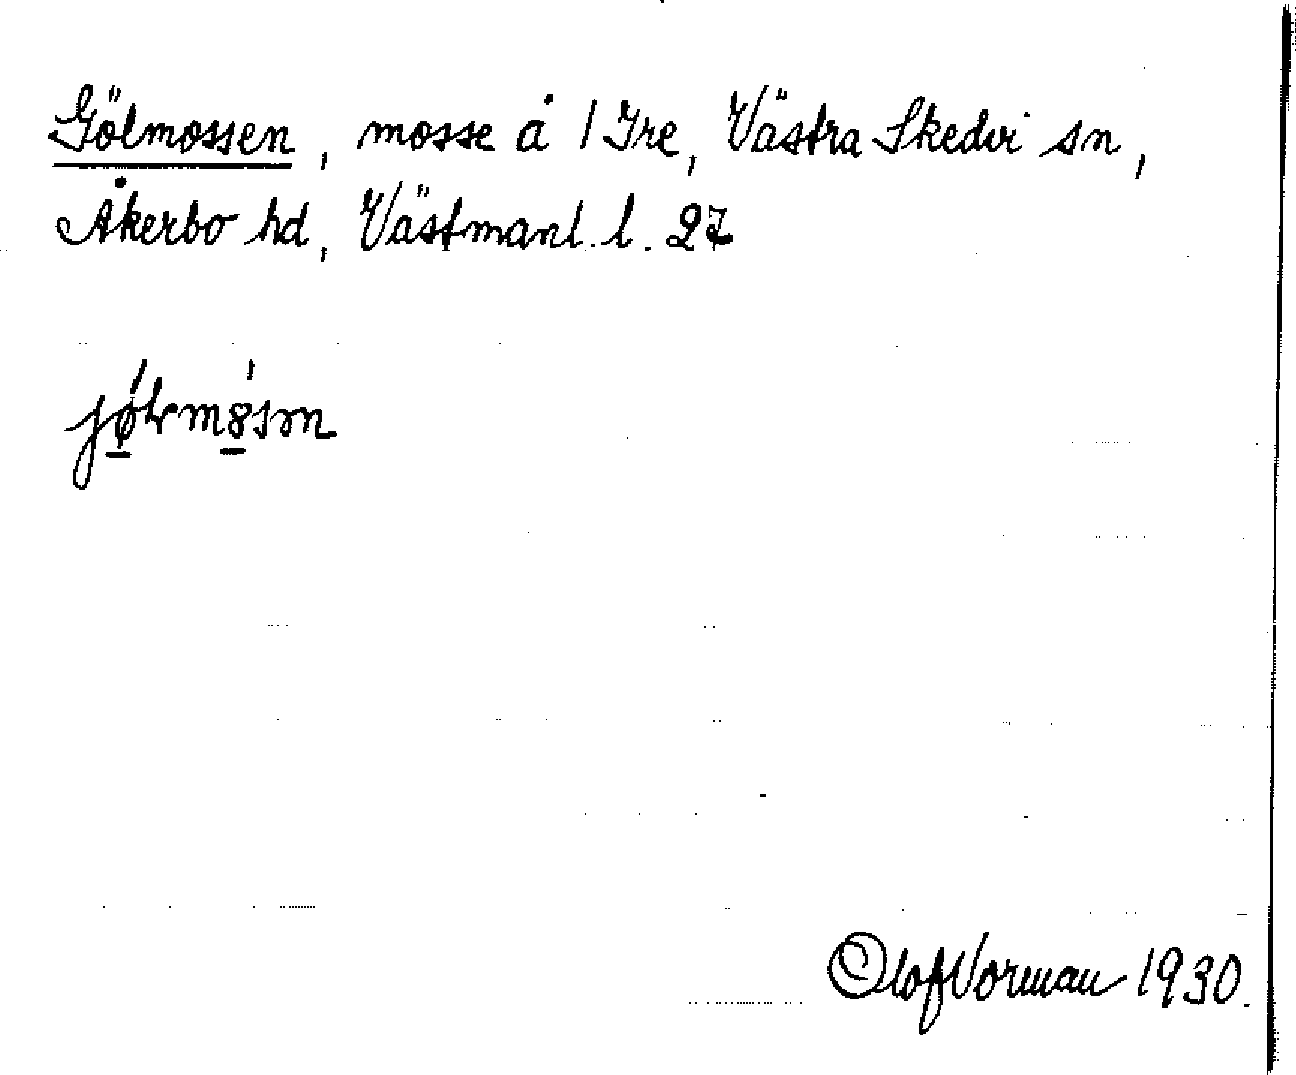 Gölmossen, mosse å 1 Yre, Västra Skedvi sn,
Åkerbo hd, Västmanl. l. 27
Olof Vorman 1930.